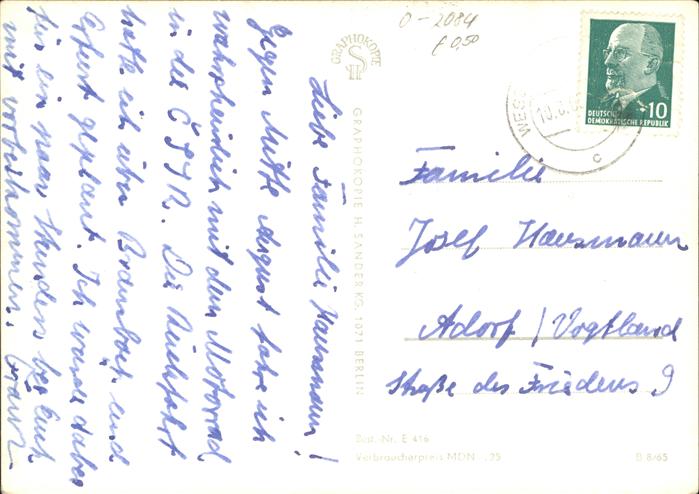 Liebe Familie Hausmann!
Gegen Mitte August fahre ich
wahrscheinlich mit dem Motorrad
in die ČSSR. Die Rückfahrt
hatte ich über Brambach und
Erfurt geplant. Ich würde dabei
für ein paar Stunden bei Euch
mit vorbeikommen.
GRAPHOKOPIE
GRAPHOKOPIE H. SANDER KG, 1071 BERLIN
0-2084
f 0,50
DEUTSCHE
DEMOKRATISCHE REPUBLIK
10
c
Familie
Josef Hausmann
Adorf / Vogtland
Straße des Friedens 9
Best.-Nr. E 416
Verbraucherpreis MDN -,25
B 8/65